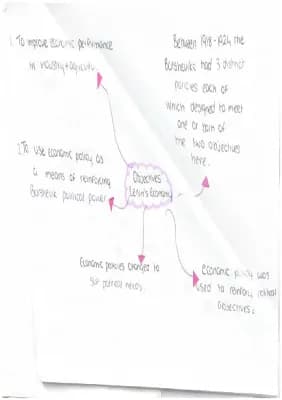 1. To improve economic performance
in industry + agricultu
Between 1918-1924 the
Bolsheviks had 3 distinct
policies each of
which designed to meet
one or both of
the two objectives
here.
2. To use economic policy as
a means of reinforcing
Bolshevik political power
Objectives
Lenin's Economy
Economic policies changed to
suit political needs.
economic policy was
used to reinforce political
objectives.